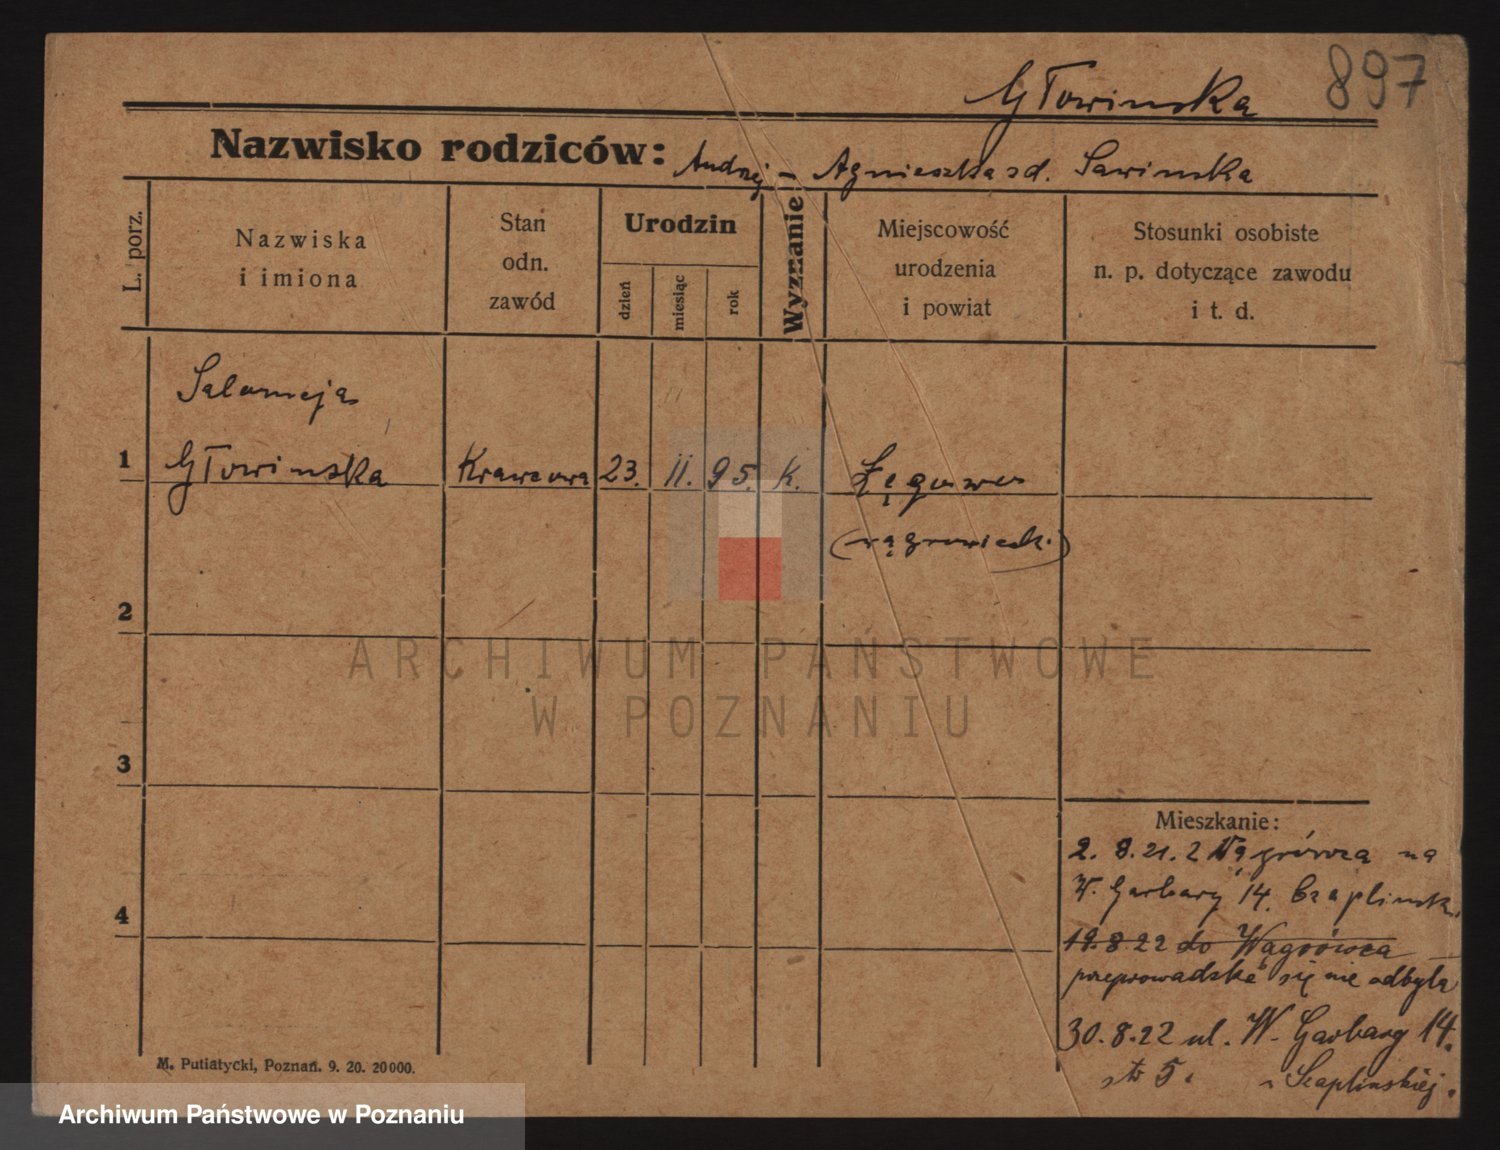 897
Głowinska
Nazwisko rodziców: Andrzej – Agnieszka zd. Sawinska
L. porz.
Nazwiska
i imiona
Stan
odn.
zawód
Urodzin
dzień
miesiąc
rok
Wyznanie
Miejscowość
urodzenia
i powiat
Stosunki osobiste
n. p. dotyczące zawodu
i t. d.
Salomeja
1 Głowinska Krawcowa 23. 11. 95. k. Łęgowo
(wągrowieck.)
2
ARCHIWUM PAŃSTWOWE
W POZNANIU
3
Mieszkanie:
2. 8. 21. z Wągrówca na
W. Garbary 14. Czaplinsk.
4
19.8.22 do Wągrówca
przeprowadzka się nie odbyła
30.8.22 ul. W. Garbary 14.
5. Czaplinskiej.
M. Putiatycki, Poznań. 9. 20. 20000.
Archiwum Państwowe w Poznaniu